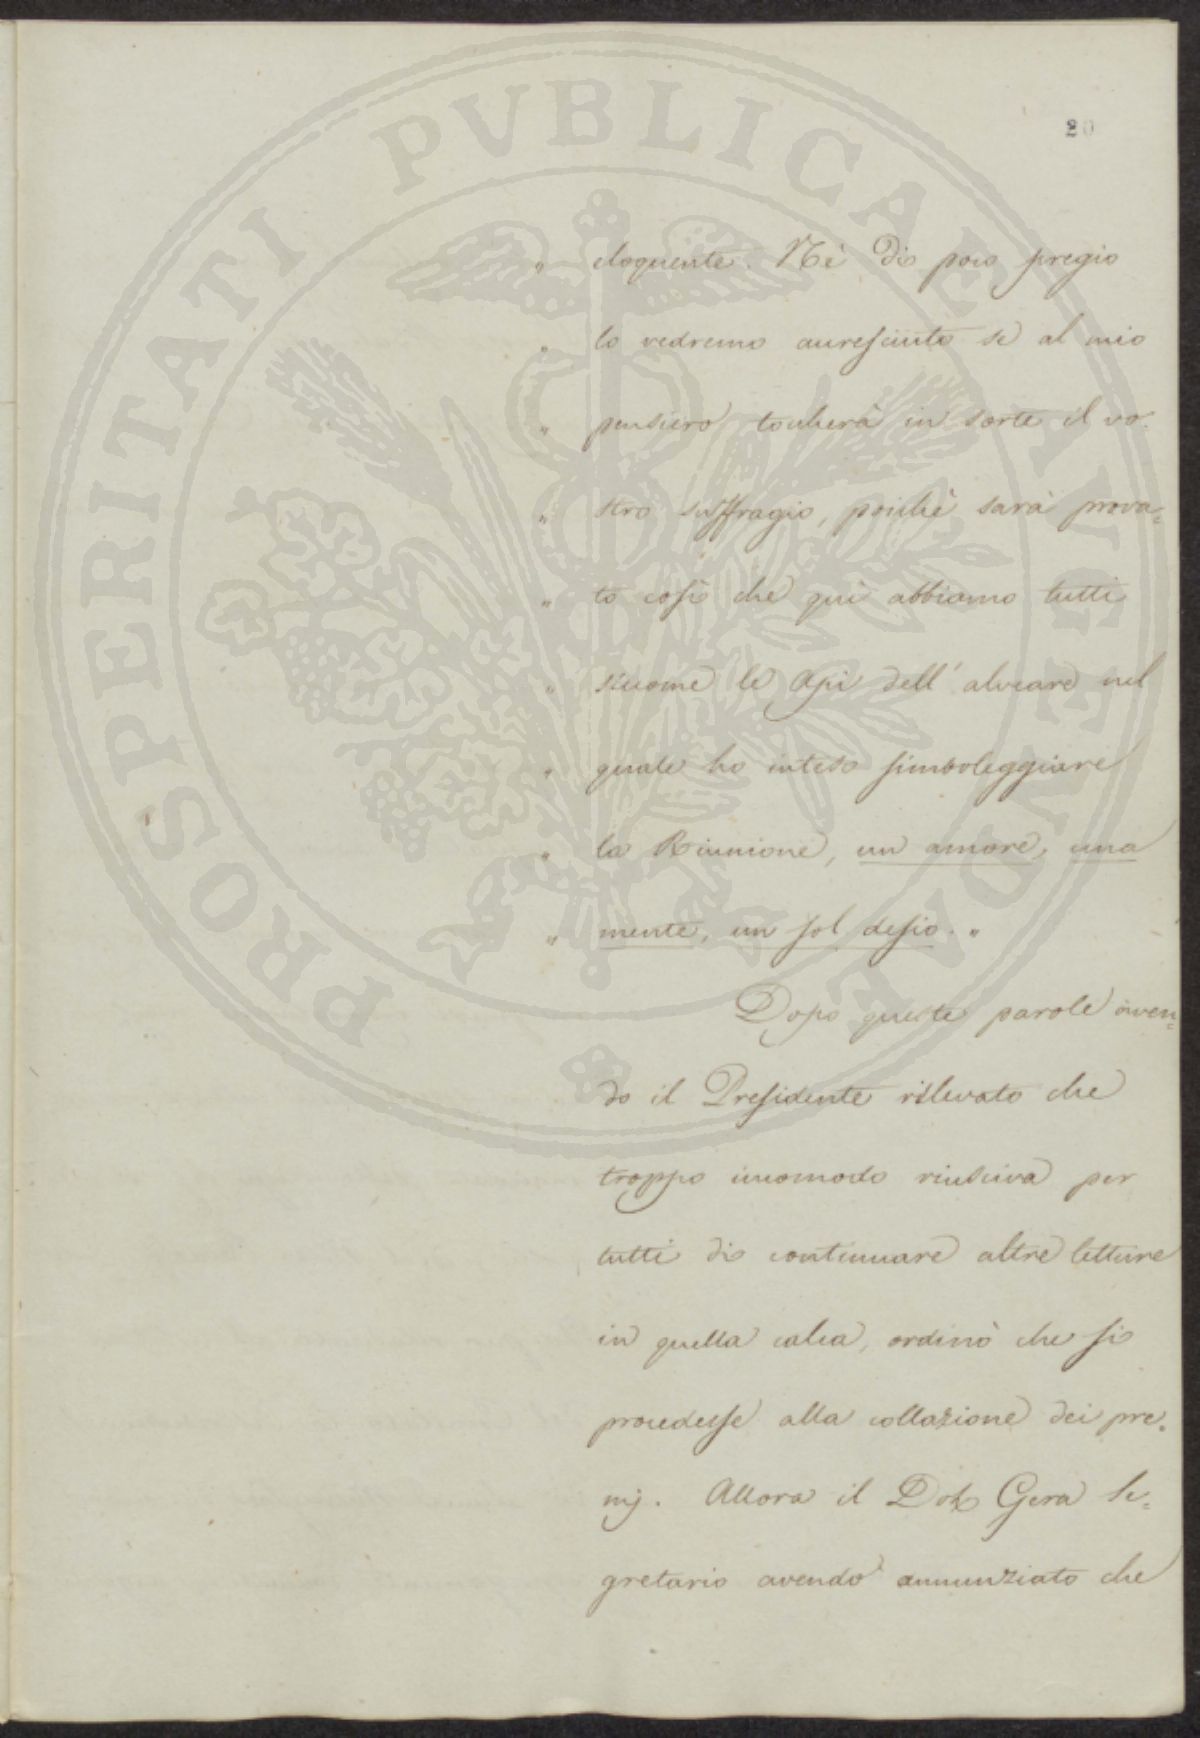 20
" eloquente. Nè di poco pregio
" lo vedremo accresciuto se al mio
" pensiero toccherà in sorte il vo-
" stro suffragio, poichè sarà prova-
" to così che quì abbiamo tutti
" siccome le Api dell'alveare nel
" quale ho inteso simboleggiare
" la Riunione, un amore, una
" mente, un sol desio. "
Dopo queste parole aven-
do il Presidente rilevato che
troppo incomodo riusciva per
tutti di continuare altre letture
in quella calca, ordinò che si
procedesse alla collazione dei pre-
mj. Allora il Dott Gera Se-
gretario avendo annunziato che
PROSPERITATI PVBLICAE AVGENDAE